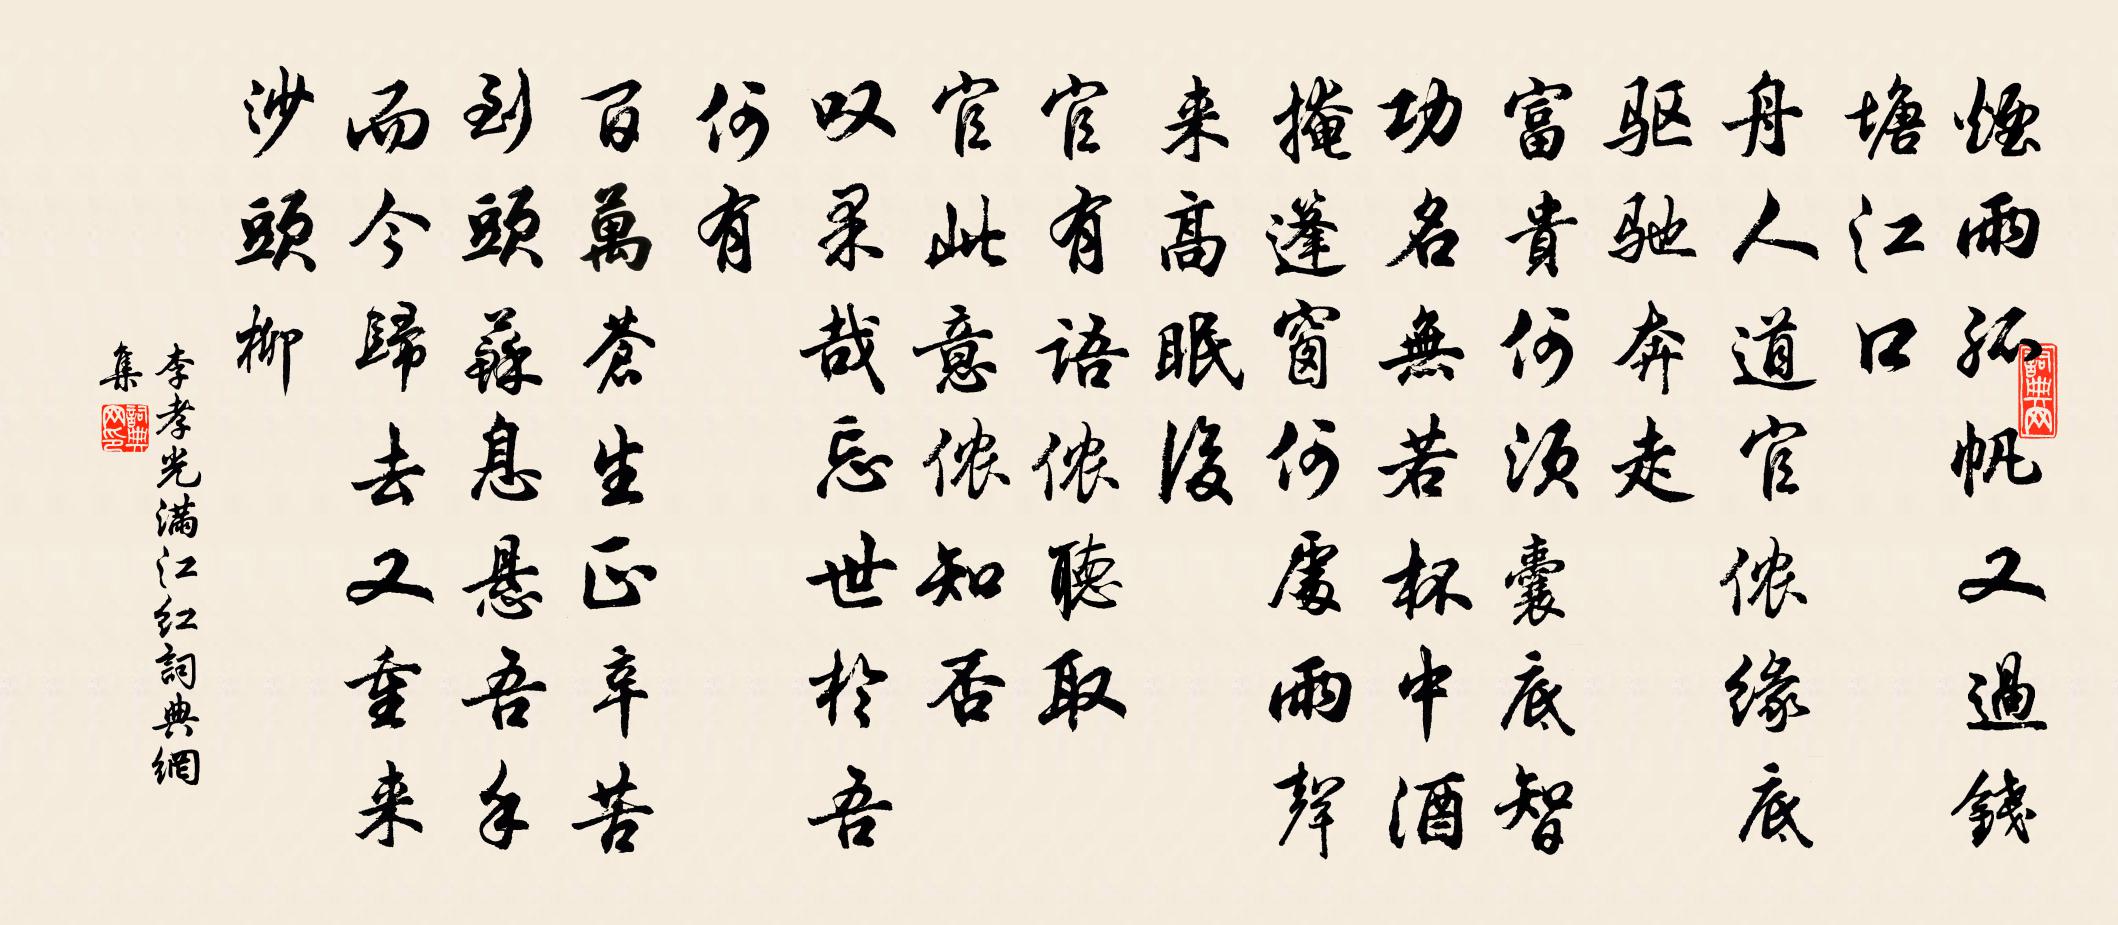 煙雨孤帆又過錢
塘江口
舟人道官侬缘底
驱驰奔走
富貴何須囊底智
功名無若杯中酒
掩蓬窗何處雨聲
来高眠後
官有语侬聽取
官此意侬知否
叹果哉忘世於吾
何有
百萬苍生正辛苦
到頭蘇息悬吾手
而今歸去又重来
沙頭柳
李孝光满江红詞典網
集
詞典网
詞典网印